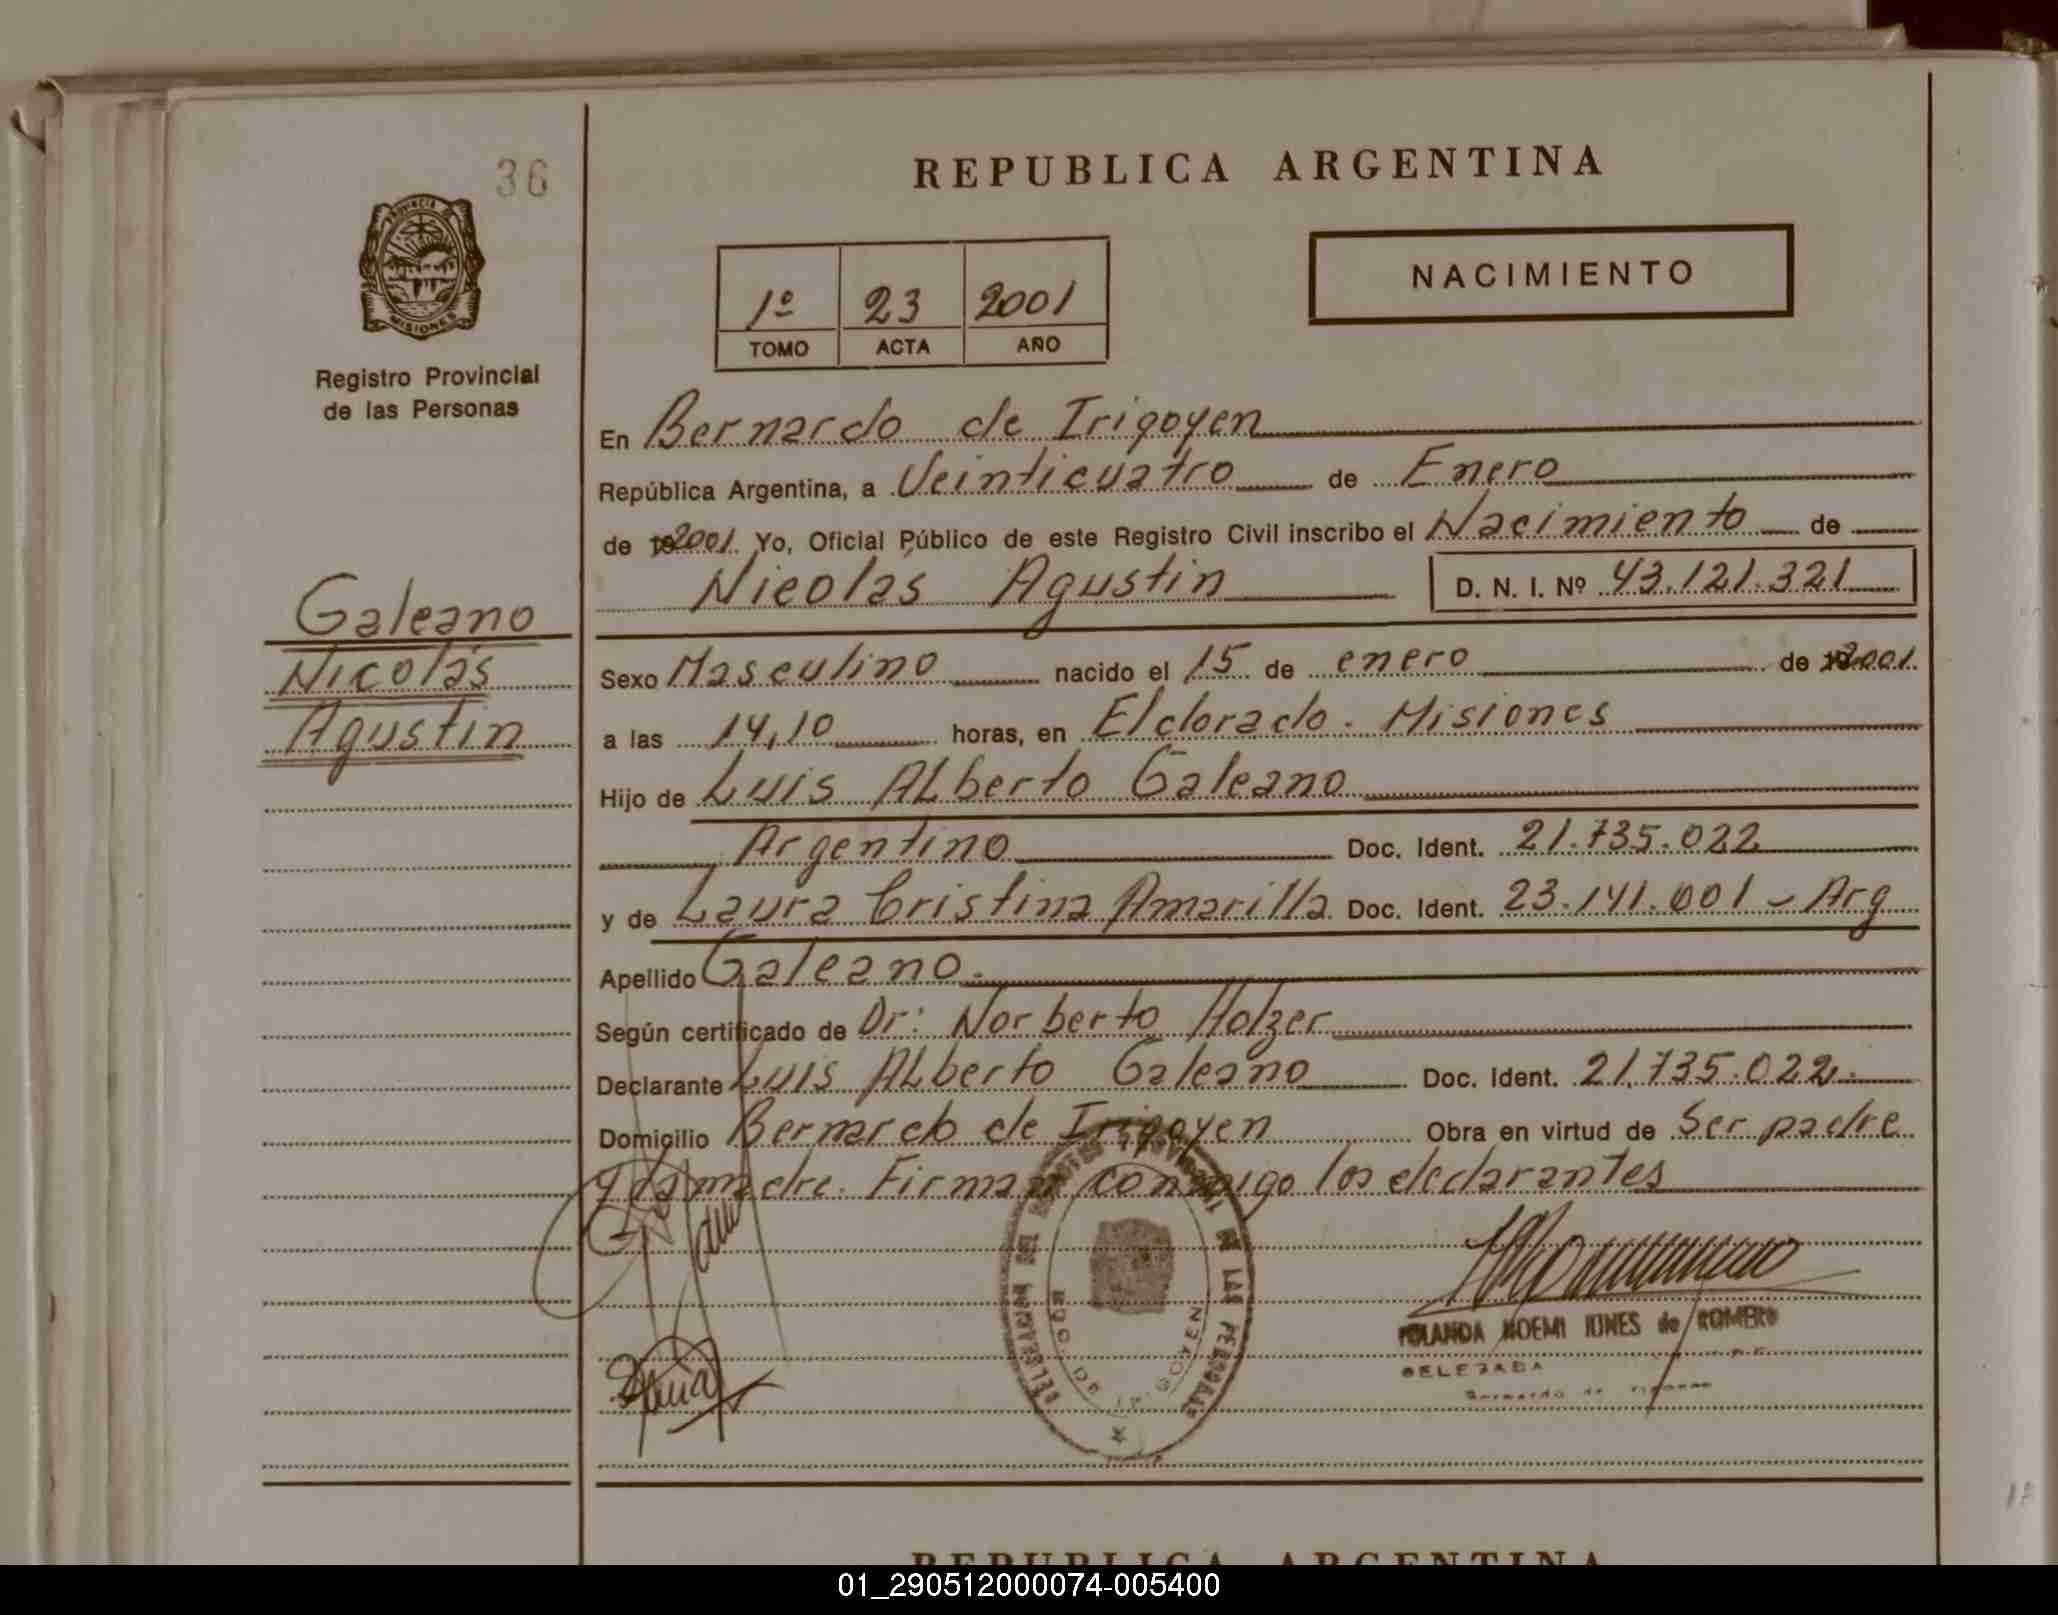 36
PROVINCIA DE
MISIONES
Registro Provincial
de las Personas
Galeano
Nicolás
Agustin
REPUBLICA ARGENTINA
1º 23 2001
TOMO ACTA AÑO
NACIMIENTO
En Bernardo de Irigoyen
República Argentina, a Veinticuatro de Enero
de 2001. Yo, Oficial Público de este Registro Civil inscribo el Nacimiento de
Nicolás Agustin D. N. I. Nº 43.121.321
Sexo Masculino nacido el 15 de enero de 2001.
a las 14,10 horas, en Eldorado. Misiones
Hijo de Luis ALberto Galeano
Argentino Doc. Ident. 21.735.022
y de Laura Cristina Amarilla Doc. Ident. 23.141.001 - Arg
Apellido Galeano.
Según certificado de Dr: Norberto Holzer
Declarante Luis ALberto Galeano Doc. Ident. 21.735.022.
Domicilio Bernardo de Irigoyen Obra en virtud de Ser padre
y la madre. Firman conmigo los declarantes
DELEGACION DEL REGISTRO PROVINCIAL DE LAS PERSONAS
BDO. DE IRIGOYEN
YOLANDA NOEMI IONES de ROMERO
DELEGADA
Bernardo de Irigoyen
REPUBLICA ARGENTINA
01_290512000074-005400